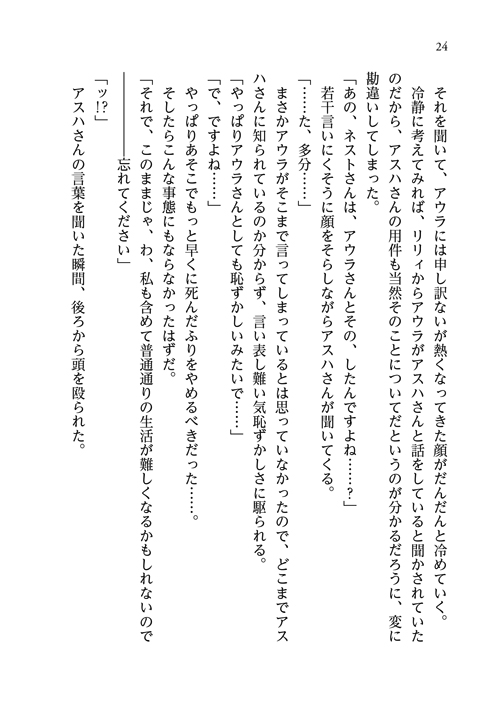 24
　それを聞いて、アウラには申し訳ないが熱くなってきた顔がだんだんと冷めていく。
　冷静に考えてみれば、リリィからアウラがアスハさんと話をしていると聞かされていた
のだから、アスハさんの用件も当然そのことについてだというのが分かるだろうに、変に
勘違いしてしまった。
「あの、ネストさんは、アウラさんとその、したんですよね……?」
　若干言いにくそうに顔をそらしながらアスハさんが聞いてくる。
「……た、多分……」
　まさかアウラがそこまで言ってしまっているとは思っていなかったので、どこまでアス
ハさんに知られているのか分からず、言い表し難い気恥ずかしさに駆られる。
「やっぱりアウラさんとしても恥ずかしいみたいで……」
「で、ですよね……」
　やっぱりあそこでもっと早くに死んだふりをやめるべきだった……。
　そしたらこんな事態にもならなかったはずだ。
「それで、このままじゃ、わ、私も含めて普通通りの生活が難しくなるかもしれないので
――――――忘れてください」
「ッ!?」
　アスハさんの言葉を聞いた瞬間、後ろから頭を殴られた。